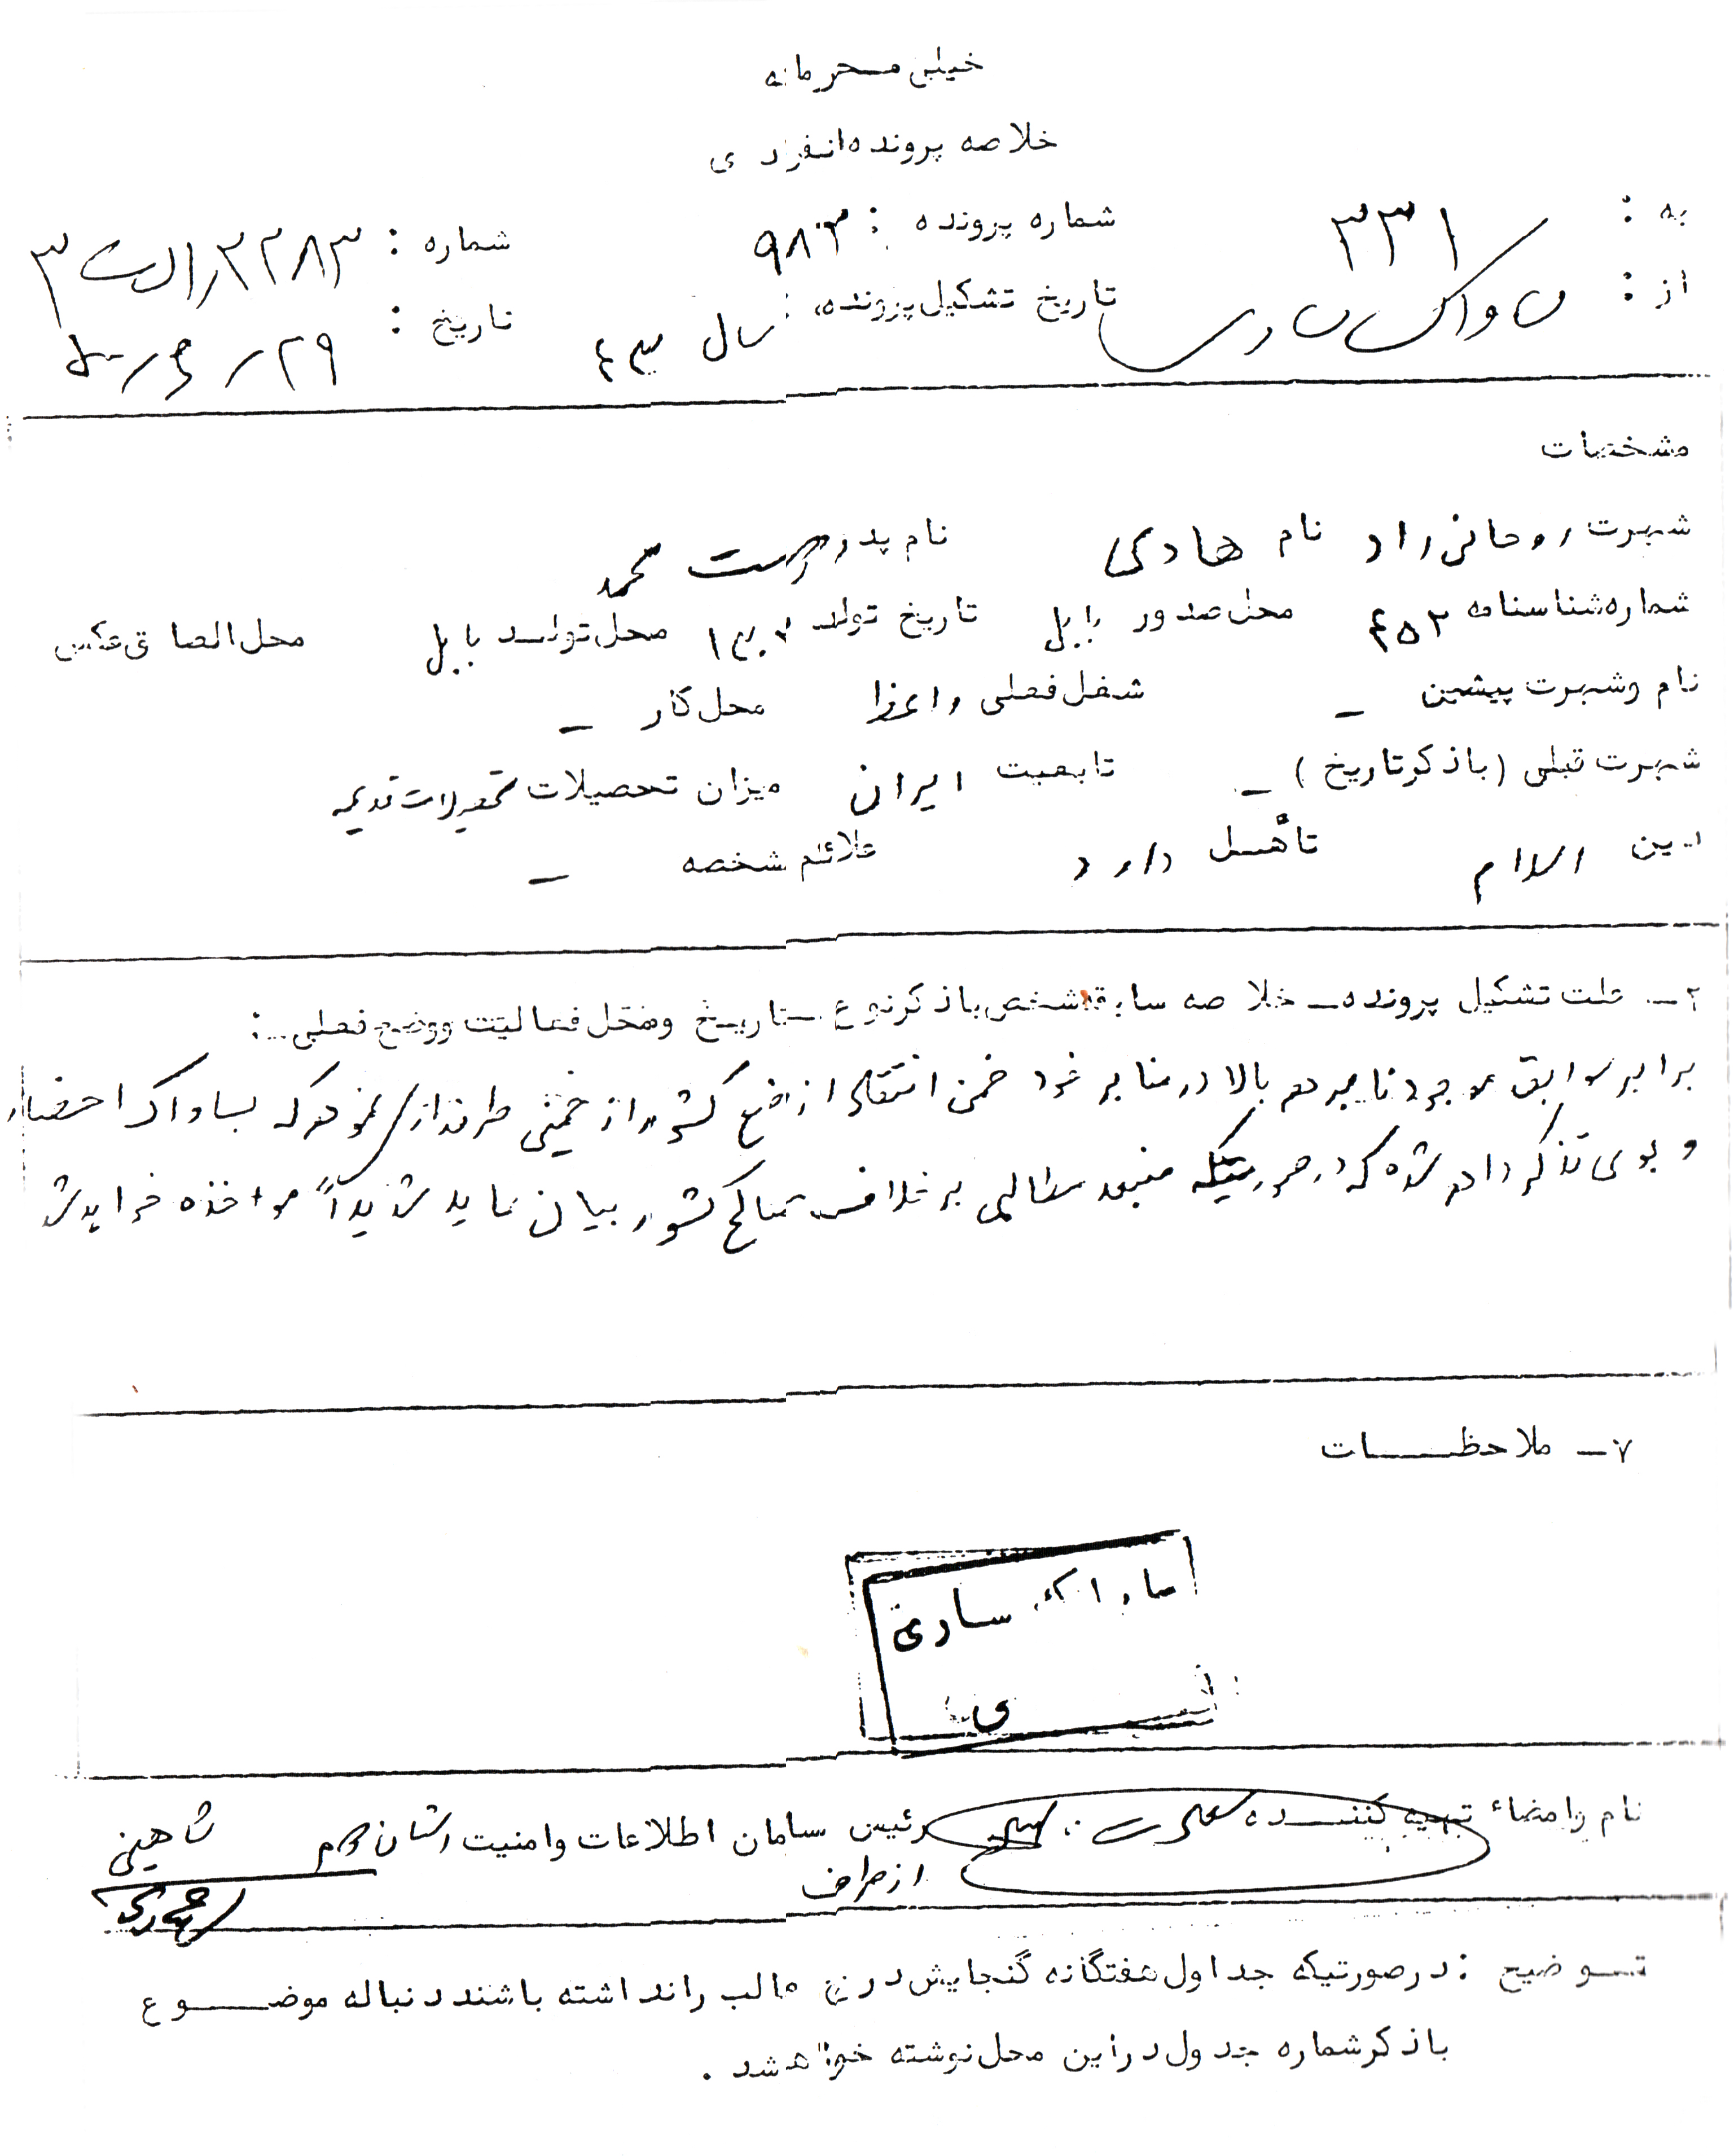 خیلی محرمانه
خلاصه پرونده انفرادی
به : ۳۳۱ شماره پرونده : ۹۸۲ شماره :
از : تاریخ تشکیل پرونده : سال ۴۳ تاریخ : ۲۹
مشخصات
شهرت روحانی راد نام هادی نام پدر محمد
شماره شناسنامه ۴۵۲ محل صدور بابل تاریخ تولد محل تولد بابل محل الصاق عکس
نام و شهرت پیشین – شغل فعلی واعظ محل کار –
شهرت قبلی (باذکر تاریخ) – تابعیت ایران میزان تحصیلات تحصیلات قدیمه
دین اسلام تأهل دارد علائم مشخصه –
۲– علت تشکیل پرونده – خلاصه سابقه شخص باذکر نوع – تاریخ و محل فعالیت ووضع فعلی – :
برابر سوابق موجود نامبرده بالا در منابر خود ضمن انتقاد از وضع کشور از خمینی طرفداری نموده که بساواک احضار
و بوی تذکر داده شده که در صورتیکه منبعد مطالبی برخلاف مصالح کشور بیان نماید شدیداً مواخذه خواهد شد
۷– ملاحظات
ساواک ساری
نام وامضاء تهیه کننده رئیس سازمان اطلاعات وامنیت استان دوم شاهینی
از طرف
توضیح : درصورتیکه جداول هفتگانه گنجایش درج مطالب رانداشته باشند دنباله موضوع
باذکر شماره جدول دراین محل نوشته خواهد شد .